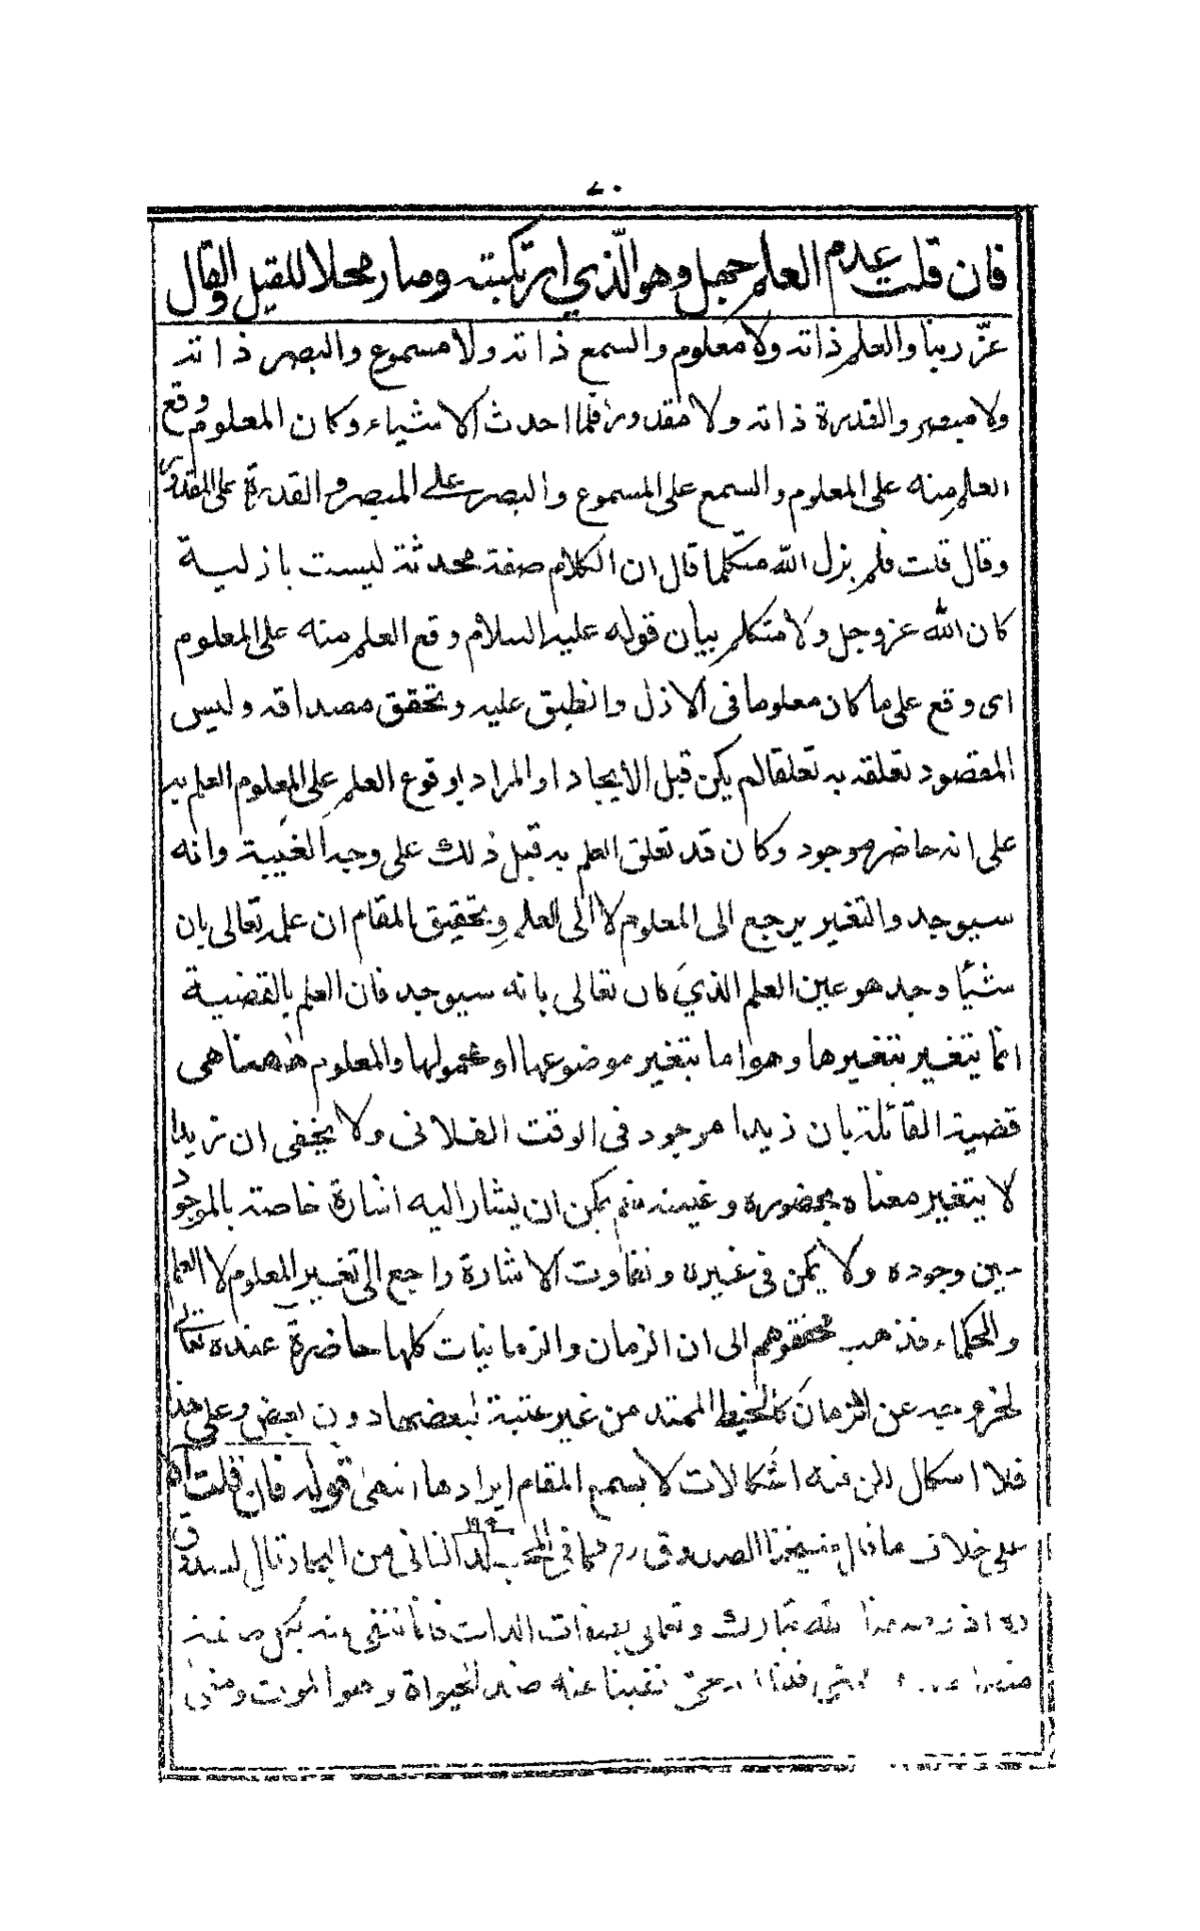 ٧٠
فان قلت عدم العلم جهل وهو الذي ارتكبته وصار محلا للقيل والقال
عزّ ربنا والعلم ذاته ولا معلوم والسمع ذاته ولا مسموع والبصر ذاته
ولا مبصر والقدرة ذاته ولا مقدور فلما احدث الاشياء وكان المعلوم وقع
العلم منه على المعلوم والسمع على المسموع والبصر على المبصر والقدرة على المقدور
وقال قلت فلم يزل الله متكلما قال ان الكلام صفة محدثة ليست بازلية
كان الله عز وجل ولا متكلم بيان قوله عليه السلام وقع العلم منه على المعلوم
اى وقع على ما كان معلوما فى الازل وانطبق عليه وتحقق مصداقه وليس
المقصود تعلقه به تعلقا لم يكن قبل الايجاد او المراد بوقوع العلم على المعلوم العلم به
على انه حاضر موجود وكان قد تعلق العلم به قبل ذلك على وجه الغيبة وانه
سيوجد والتغير يرجع الى المعلوم لا الى العلم وتحقيق المقام ان علمه تعالى بان
شيئا وجد هو عين العلم الذي كان تعالى بانه سيوجد فان العلم بالقضية
انما يتغير بتغيرها وهو اما بتغير موضوعها او محمولها والمعلوم هاهنا هى
قضية القائلة بان زيدا موجود فى الوقت الفلانى ولا يخفى ان زيدا
لا يتغير معناه بحضوره وغيبته فلم يمكن ان يشار اليه اشارة خاصة بالموجود
حين وجوده ولا يمكن فى غيره وتفاوت الاشارة راجع الى تغيير المعلوم لا العلم
والحكماء فذهب محققوهم الى ان الزمان والزمانيات كلها حاضرة عنده تعالى
لخروجه عن الزمان كالخيط الممتد من غير غيبة لبعضها دون بعض وعلى هذا
فلا اشكال لكن فيه اشكالات لا يسع المقام ايرادها انتهى قوله فان قلت
على خلاف ما قال شيخنا الصدوق ره فيما فى المجلد الثانى من البحار قال
تبارك وتعالى بصفات الذات فانما ننفي عنه بكل صفة
نفينا عنه ضد الحيواة وهو الموت ومتى